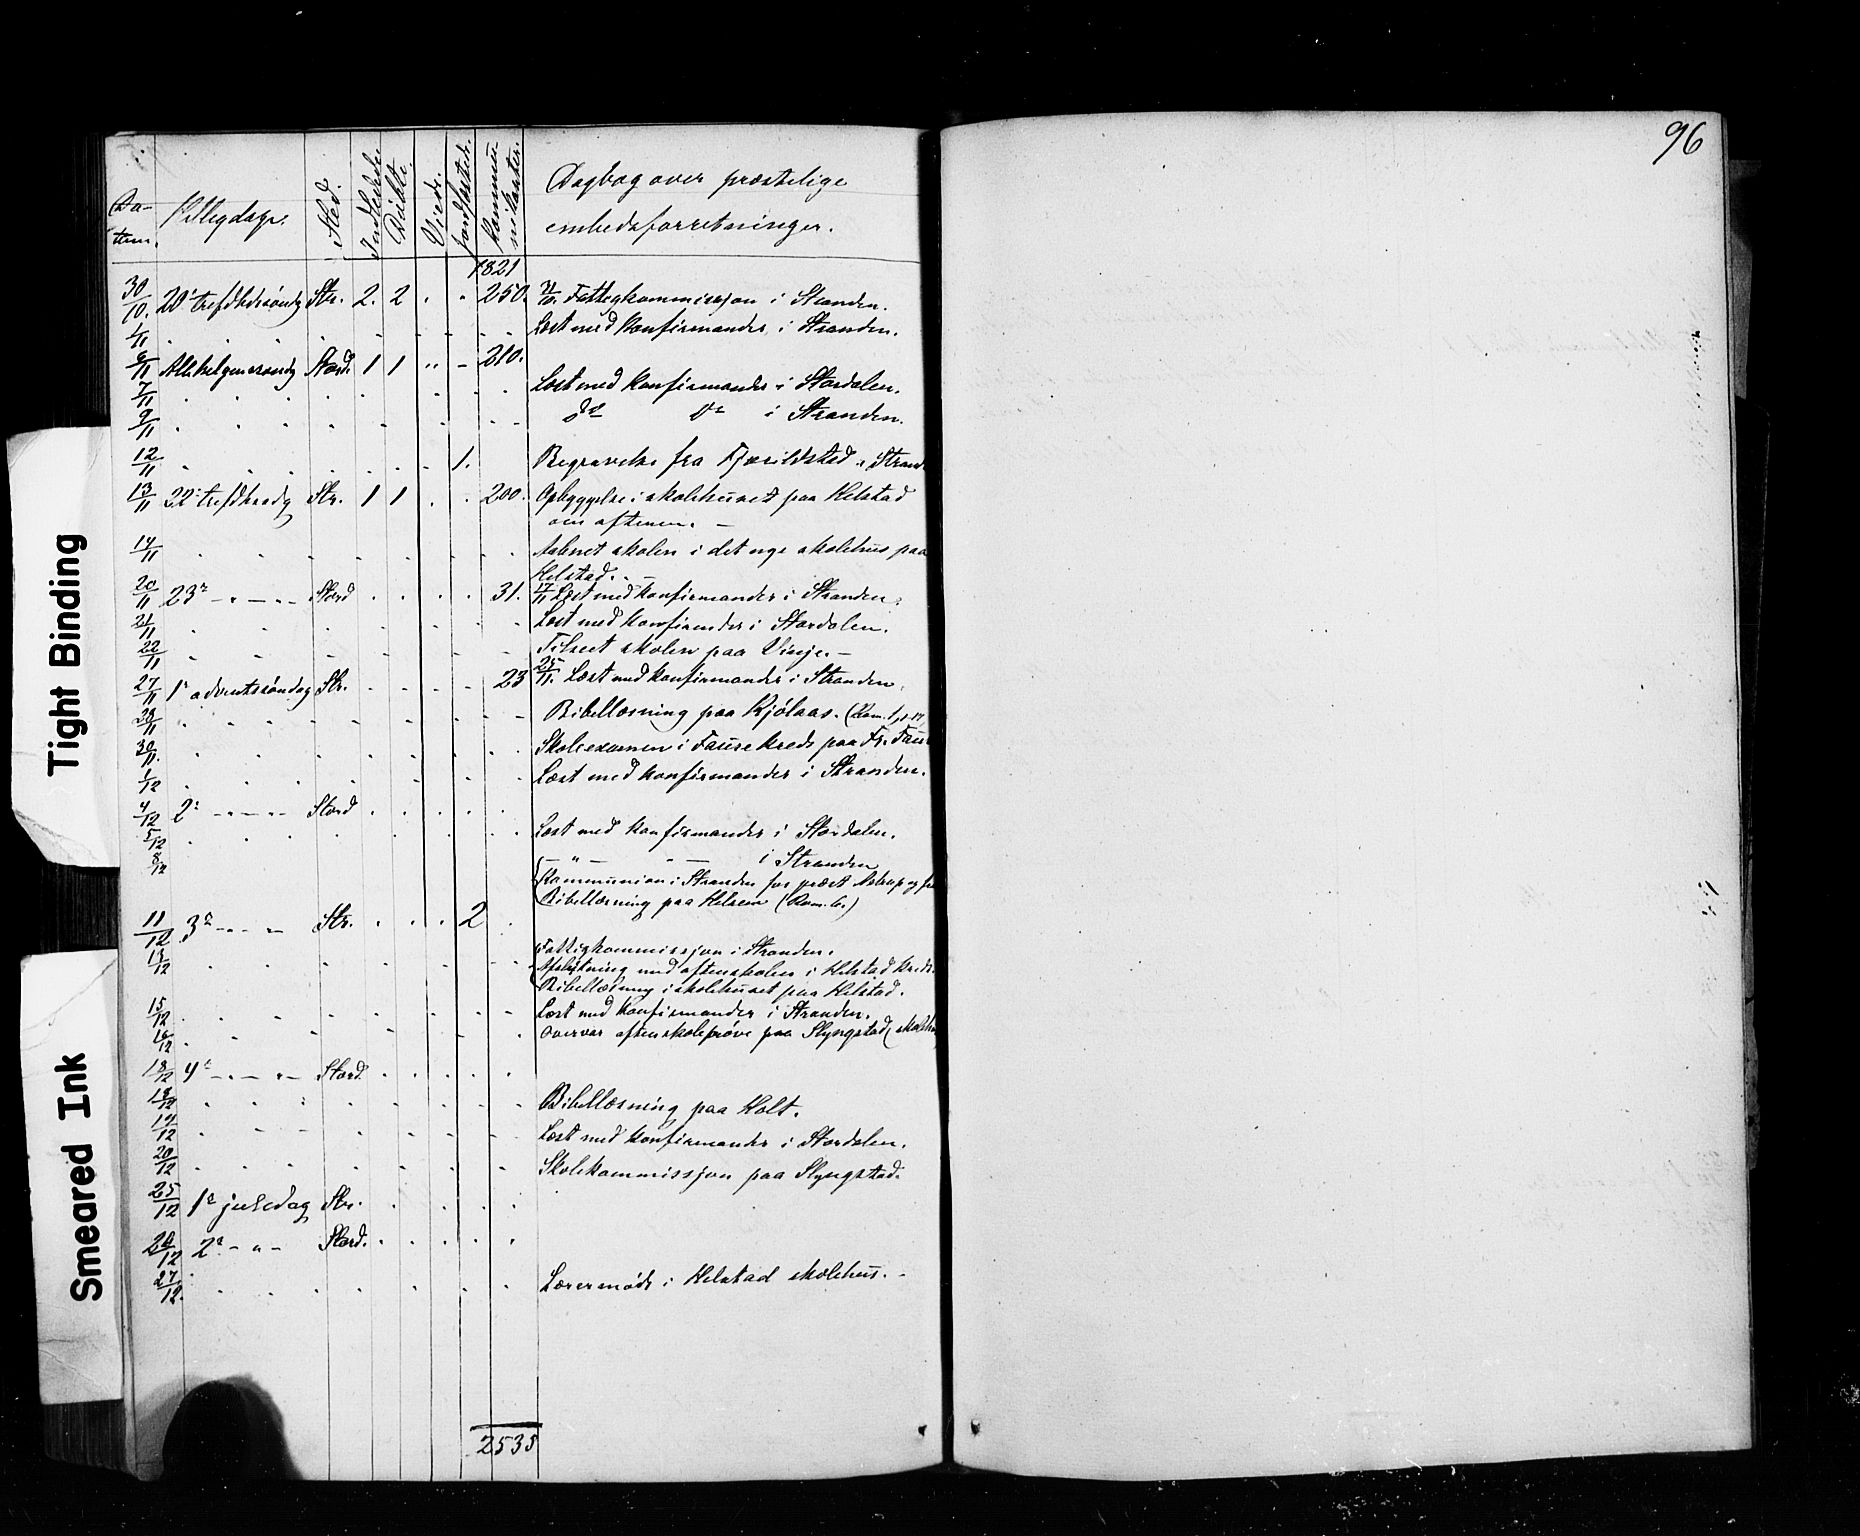 96
Da-
tum.
Helligdage.
Sted.
Indledede
Døbte.
Viede.
Jordfæstede.
Kommu-
nikanter.
Dagbog over præstelige
embedsforretninger.
1821
30/10. 20de tref. Str. 2. 2 . . 250. Fattigkommissjon i Stranden.
1/11 . . . . Læst med konfirmander i Stranden.
6/11 Allehelgenssøndg Stord. 1 1 " - 210.
7/11 . . . . Læst med konfirmander i Stordalen.
9/11 . . . . do do i Stranden.
12/11 . . . . 1. Begravelse fra Fjærildstad i Strand
13/11 22de tref. Str. 1 1 . . 200. Opbyggelse i skolehuset paa Helstad
om aftenen. -
14/11 . . . . Aabnet skolen i det nye skolehus paa
Helstad. -
20/11 23de - " - " - Stord . . . . 31. 17/11 Læst med konfirmander i Stranden.
21/11 . . . . Læst med konfirmander i Stordalen.
22/11 . . . . Tilseet skolen paa Vinje. -
27/11 1ste adventssøndag Str. . . . - 23 25/11. Læst med konfirmander i Stranden.
. . . . Bibellæsning paa Kjølaas. (Rom. 1,
30/11. . . . . Skoleexamen i Faure kreds paa Fr. Faur
1/12 . . . . Læst med konfirmander i Stranden.
4/12 2de - " - " - Stord . . . .
5/12 . . . . Læst med konfirmander i Stordalen.
8/12 - " - " - i Stranden
Kommunion i Stranden for præst Astrup og
Bibellæsning paa Helsem (Rom. 6.)
11/12 3de - " - " - Str. . . . 2 .
13/12 . . . . Fattigkommissjon i Stranden.
Afslutning med aftenskolen i Helstad kreds.
Bibellæsning i skolehuset paa Helstad.
15/12 . . . . Læst med konfirmander i Stranden.
16/12 . . . . Overvar aftenskoleprøve paa Slyngstad (
18/12 4de - " - " - Stord. . . . .
18/12 . . . . Bibellæsning paa Holt.
19/12 . . . . Læst med konfirmander i Stordalen.
20/12 . . . . Skolekommissjon paa Slyngstad.
25/12 1ste juledag Str. . . . .
26/12 2den - " - Stord. . . . .
27/12. . . . . Lærermøde i Helstad skolehus. -
2535
Tight Binding
Smeared Ink